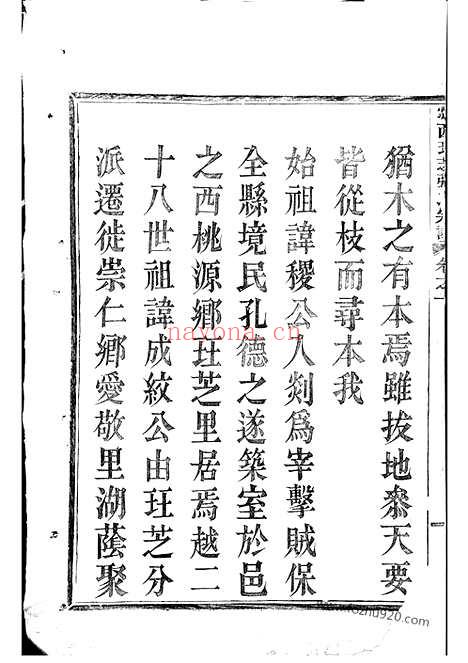 猶木之有本焉雖拔地叅天要
皆從枝而尋本我
始祖諱稷公人剡爲宰擊賊保
全縣境民孔德之遂築室於邑
之西桃源鄉玨芝里居焉越二
十八世祖諱成紋公由玨芝分
派遷徙崇仁鄉愛敬里湖蔭聚
nayona.cn
www.fozhu920.com